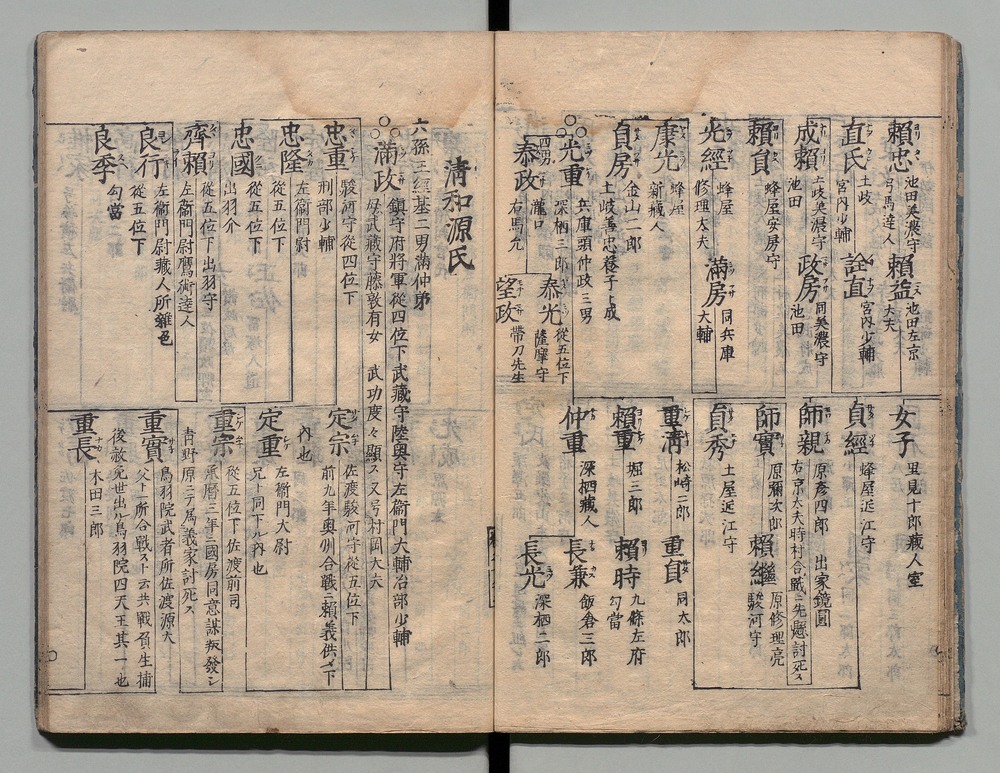 頼忠 池田美濃守 弓馬達人
頼益 池田左京大夫
直氏 土岐 宮内少輔
詮直 宮内少輔
成頼 土岐美濃守 池田
政房 同美濃守 池田
頼貞 蜂屋安房守
光経 蜂屋 修理大夫
満房 同兵庫 大輔
康光 蜂屋 新蔵人
貞房 金山一郎 土岐善忠養子ト成
光重 兵庫頭仲政三男 深栖三郎
泰政 四男 瀧口 右馬允
泰光 従五位下 薩摩守
望政 帯刀先生
女子 里見十郎蔵人室
貞経 蜂屋近江守
師親 原彦四郎 出家鏡圓
右京大夫時村合戦ニ先懸討死ス
師實 原彌次郎
頼継 原修理亮 駿河守
貞秀 土屋近江守
重清 松崎二郎
重貞 同太郎
頼重 堀三郎
頼時 九條左府 勾當
仲重 深栖蔵人
長兼 飯倉三郎
長光 深栖二郎
清和源氏
六孫王経基二男満仲弟
満政 鎮守府将軍従四位下武蔵守陸奥守左衛門大輔治部少輔
母武蔵守藤敦有女 武功度々顕ス又号村岡大夫
忠重 駿河守従四位下 刑部少輔
忠隆 左衛門尉 従五位下
忠國 従五位下 出羽介
齊頼 従五位下出羽守 左衛門尉鷹術達人
良行 左衛門尉蔵人所雜色 従五位下
良季 勾當
定宗 佐渡駿河守従五位下
前九年奥州合戦ニ頼義供メ下
内也
定重 左衛門大尉
兄ト同下ル内也
重宗 従五位下佐渡前司
承暦三年三國房同意謀叛發シ
青野原ニテ為義家討死ス
重實 鳥羽院武者所佐渡源太
父ト一所合戦ストモ共戦負生捕
後赦免世出ル鳥羽院四天王其一也
重長 木田三郎